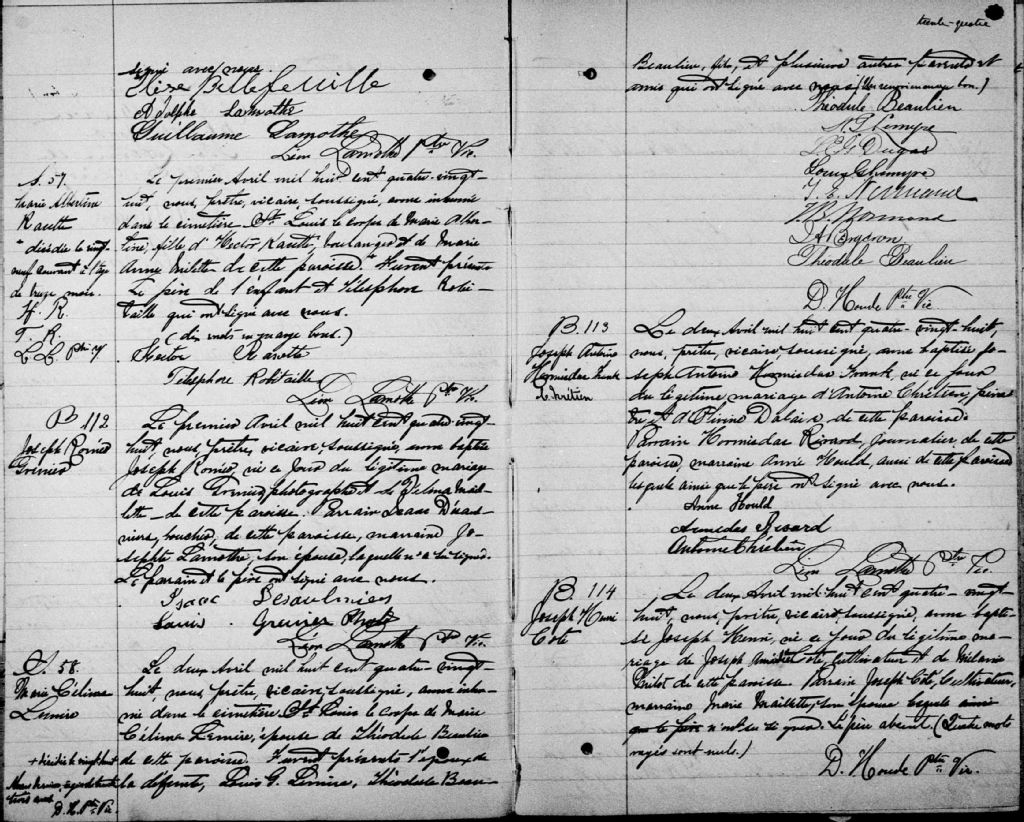 signé avec nous.
Elise Bellefeuille
Adolphe Lamothe
Guillaume Lamothe
Léon Lamothe ptre Vic.
S. 57.
Marie Albertine
Racette
" décédée le vingt-
neuf courant à l'âge
de treize mois.
H. R.
T. R.
L. L. Ptre V
Le premier Avril mil huit cent quatre-vingt
huit, nous, prêtre, vicaire, soussigné, avons inhumé
dans le cimetière St Louis le corps de Marie Alber-
tine, fille d'Hector Racette, boulanger et de Marie
Anne Milette de cette paroisse." Furent présents
Le père de l'enfant et Télesphore Robi-
taille qui ont signé avec nous.
(dix mots en marge bons.)
Hector Racette
Télésphore Robitaille
Léon Lamothe Ptre Vic.
B 112
Joseph Roméo
Grenier
Le premier Avril mil huit cent quatre vingt
huit, nous, prêtre, vicaire, soussigné, avons baptisé
Joseph Roméo, né ce jour du légitime mariage
de Louis Grenier, photographe et de Zelma Mail-
lette de cette paroisse. Parrain Isaac Désaul-
niers, boucher, de cette paroisse, marraine Jo-
sephte Lamothe, son épouse, laquelle n'a su signer.
Le parain et le père ont signé avec nous.
Isaac Desaulniers
Louis Grenier Photo
Léon Lamothe Ptre Vic.
S. 58.
Marie Célima
Lemire
+ décédée le vingt huit
Mars dernier, agée de trente
trois ans
D. H. Ptre Vic.
Le deux Avril mil huit cent quatre vingt-
huit, nous, prêtre, vicaire soussigné, avons inhu-
mé dans le cimetière St Louis le corps de Marie
Célima Lemire, épouse de Théodule Beaulieu
de cette paroisse. Furent présents l'époux de
la défunte, Louis G. Lemire, Théodule Beau-
trente-quatre
Beaulieu, fils, et plusieurs autres parents et
amis qui ont signé avec nous (Un renvoi en marge bon.)
Théodule Beaulieu
L. E. A. Dugas
Louis G Lemyre
J. E. Normand
Normand
J A Bergeron
Théodule Beaulieu
D. Houde Ptre Vic
B. 113
Joseph Antoine
Hormisdas Frank
Chrétien
Le deux Avril mil huit cent quatre-vingt-huit,
nous, prêtre, vicaire, soussigné, avons baptisé Jo-
seph Antoine Hormisdas Frank, né ce jour
du légitime mariage d'Antoine Chrétien, pein-
tre et d'Olivine Dalaire, de cette paroisse.
Parrain Hormisdas Rivard, Journalier, de cette
paroisse, marraine Annie Hould, aussi de cette paroisse
lesquels ainsi que le père ont signé avec nous.
Anne Hould
Armedas Rivard
Antoine Chrétien
Léon Lamothe Ptre Vic.
B. 114
Joseph Henri
Coté
Le deux Avril mil huit cent quatre-vingt
huit, nous, prêtre, vicaire soussigné, avons bapti-
sé Joseph Henri, né ce jour du légitime ma-
riage de Joseph Coté, Cultivateur et de Mélanie
Milot de cette paroisse. Parrain Joseph Coté, Cultivateur,
marraine Marie Maillette, son épouse lesquels ainsi
que le père n'ont su signer. Le père absent (Quatre mots
rayés sont nuls.)
D. Houde Ptre Vic.